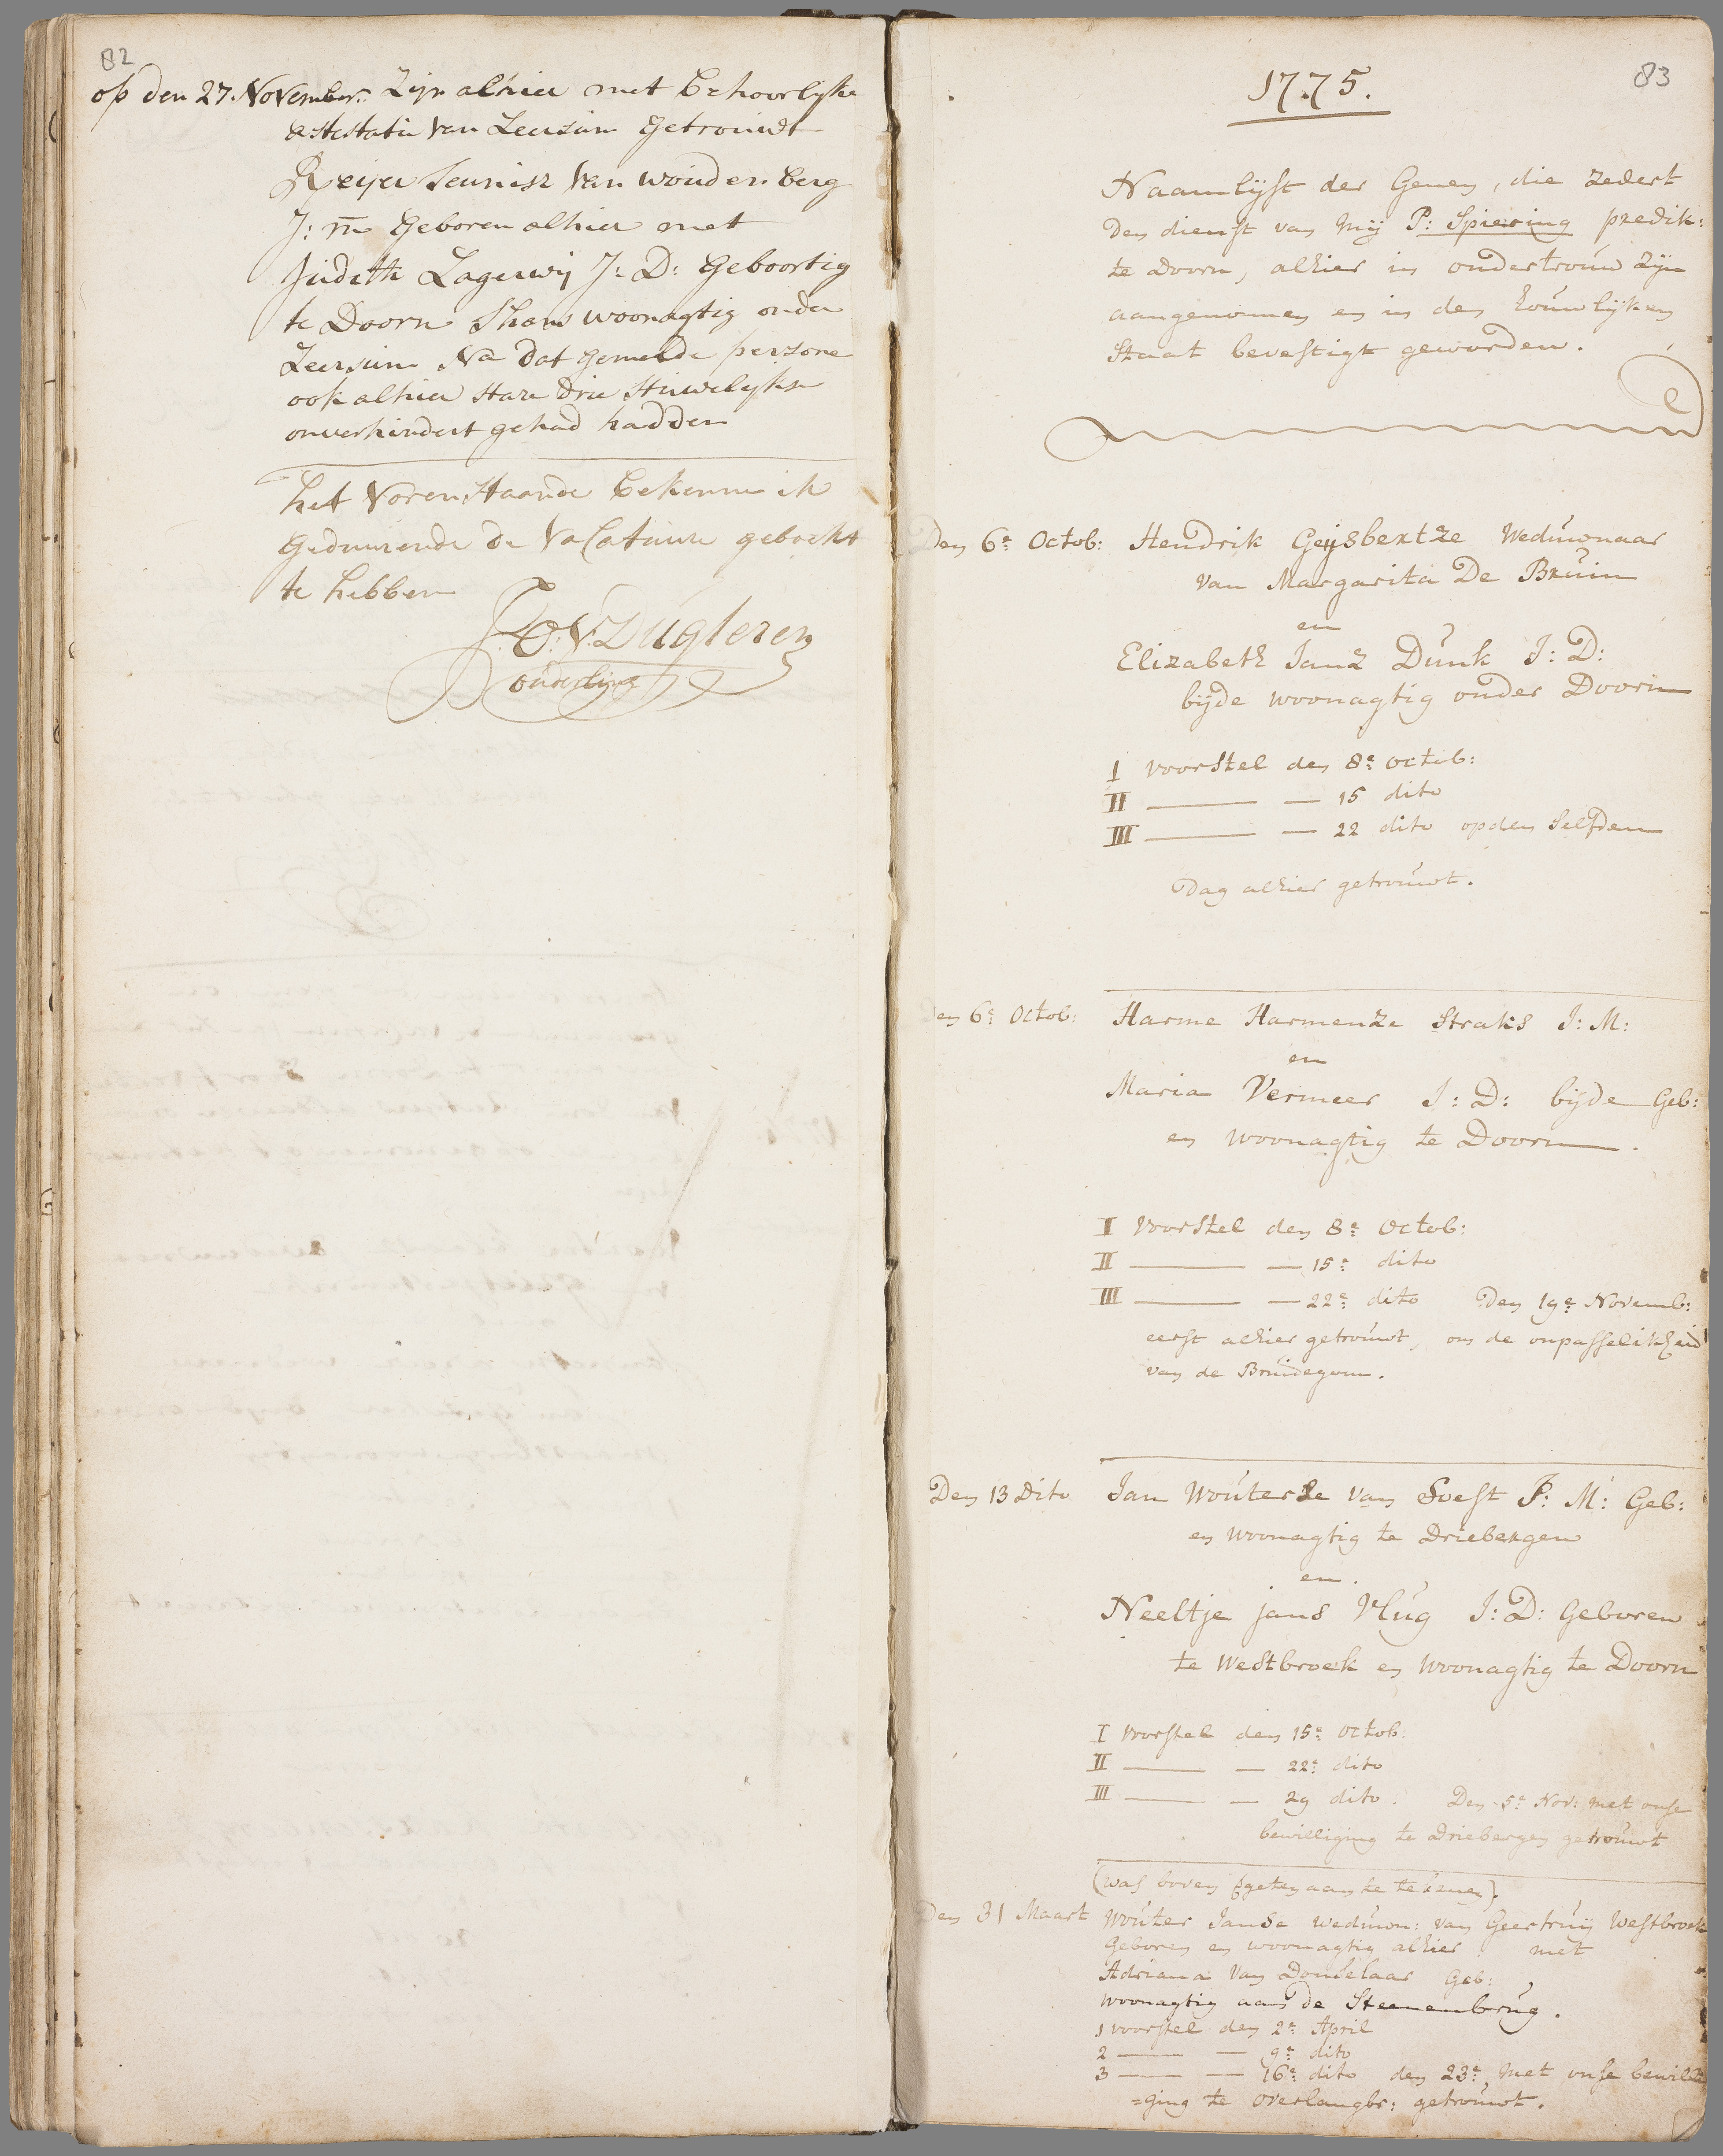 82
op den 27. November: Zijn alhier met behoorlijke
attestatie van Leersum getrouwdt
Reijer Teunisz van Woudenberg
J: m geboren alhier met
Judith Lagerwij J: D: Geboortig
te Doorn thans woonagtig onder
Leersum Na dat gemelde persone
ook alhier Hare drie Huwelijkse
onverhindert gehad hadden
het vorenstaande bekenne ik
geduurende de Vacatuure geboekt
te hebben
ouderling
83
1775.
Naamlijst der Genen, die zedert
den dienst van mij P: Spiering predik:
te Doorn, alhier in ondertrouw zijn
aangenomen en in den houwlijken
Staat bevestigt geworden.
Den 6e Octob: Hendrik Geijsbertze Weduwnaar
van Margarita De Bruin
en
Elizabeth Janz Dunk J: D:
bijde woonagtig onder Doorn
I voorstel den 8e octob:
II — — 15 dito
III — — 22 dito op den selfden
Dag alhier getrouwt.
Den 6e Octob: Harme Harmenze Straks J: M:
en
Maria Vermeer J: D: bijde Geb:
en woonagtig te Doorn.
I voorstel den 8e Octob:
II — — 15e dito
III — — 22e dito Den 19e Novemb:
eerst alhier getrouwt, om de onpasselikheid
van de Bruidegom.
Den 13 Dito Jan Wouterse van Soest J: M: Geb:
en woonagtig te Driebergen
en.
Neeltje jans Vlug J: D: Geboren
te Westbroek en woonagtig te Doorn
I voorstel den 15e octob:
II — — 22e dito
III — — 29 dito. Den 5e Nov: met onse
bewilliging te Driebergen getrouwt
(was boven vgeten aan te tekenen).
Den 31 Maart Wouter Janse weduwn: van Geertruij Westbroek
Geboren en woonagtig alhier met
Adriana van Donselaar Geb:
woonagtig aan de Steenenbrug.
1 voorstel den 2e April
2 — — 9e dito
3 — — 16e dito den 23e, met onse bewilli
=ging te overlangbr: getrouwt.